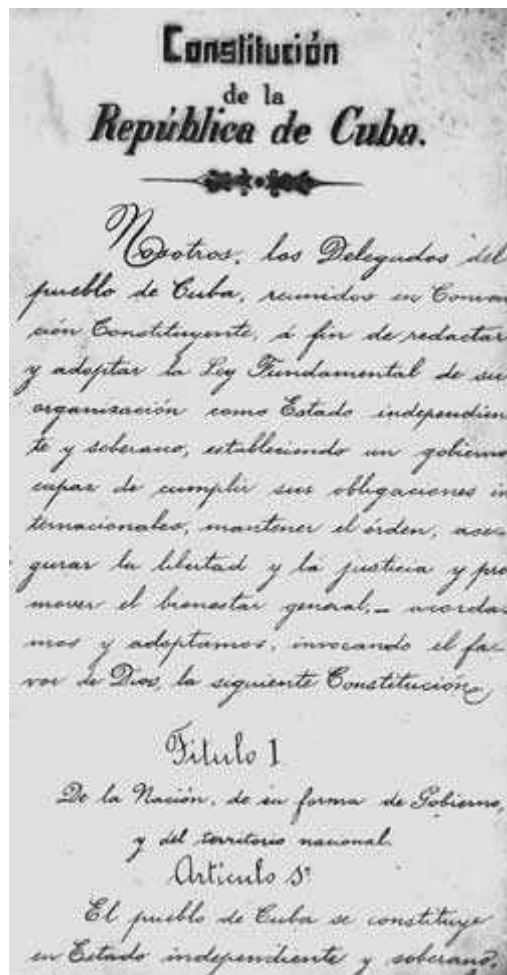 Constitución
de la
República de Cuba.
Nosotros, los Delegados del
pueblo de Cuba, reunidos en Conven
ción Constituyente, á fin de redactar
y adoptar la Ley Fundamental de su
organización como Estado independien
te y soberano, estableciendo un gobierno
capaz de cumplir sus obligaciones in
ternacionales, mantener el órden, ase-
gurar la libertad y la justicia y pro
mover el bienestar general, — acorda-
mos y adoptamos, invocando el fa-
vor de Dios, la siguiente Constitución
Titulo I
De la Nación, de su forma de Gobierno,
y del territorio nacional.
Articulo
El pueblo de Cuba se constituye
en Estado independiente y soberano,